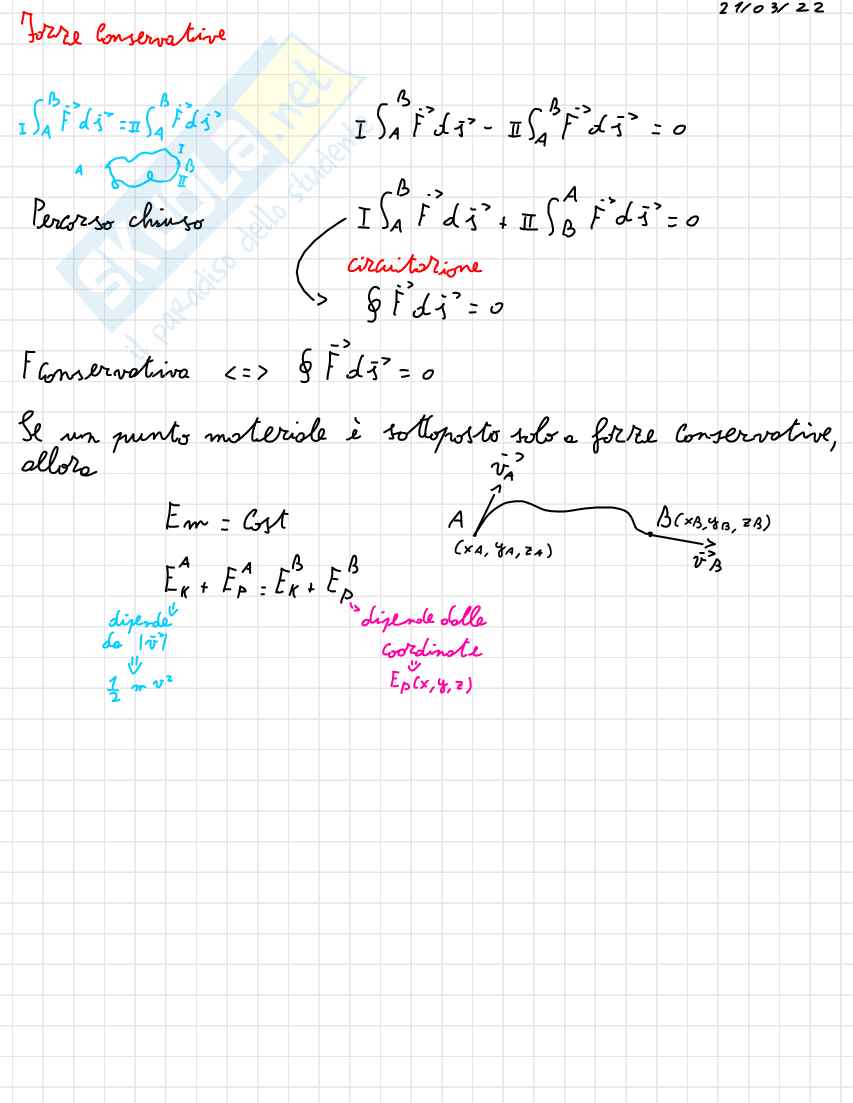 21/03/22
Forze Conservative
I ∫_A^B F⃗ ds⃗ = II ∫_A^B F⃗ ds⃗
I ∫_A^B F⃗ ds⃗ - II ∫_A^B F⃗ ds⃗ = 0
A I B II
Percorso chiuso
I ∫_A^B F⃗ ds⃗ + II ∫_B^A F⃗ ds⃗ = 0
circuitazione
∮ F⃗ ds⃗ = 0
F Conservativa <=> ∮ F⃗ ds⃗ = 0
Se un punto materiale è sottoposto solo a forze conservative,
allora
v⃗_A
Em = Cost
A
B(xB, yB, zB)
(xA, yA, zA)
v⃗_B
E_K^A + E_P^A = E_K^B + E_P^B
dipende
da |v⃗|
⇓
1/2 m v²
dipende dalle
coordinate
⇓
Ep(x, y, z)
skuola.net
il paradiso dello studente